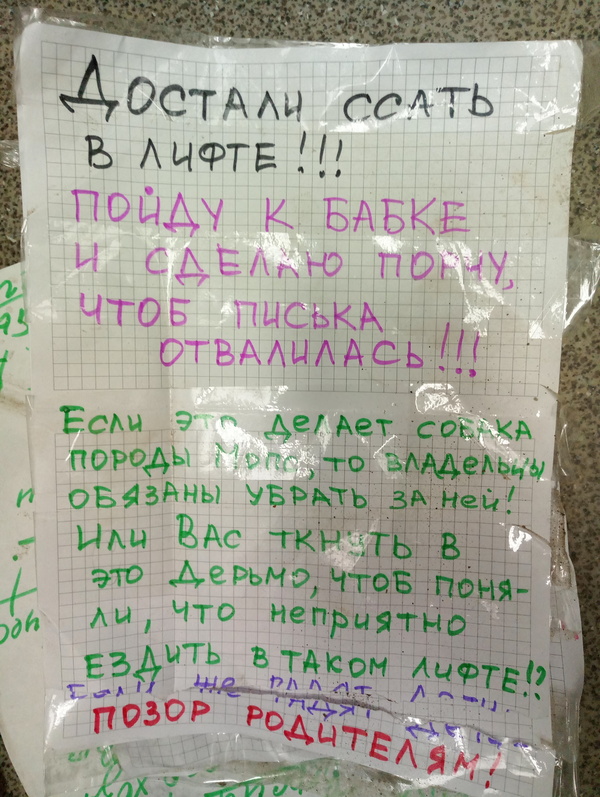 Достали ссать
в лифте!!!
Пойду к бабке
и сделаю порчу,
чтоб писька
отвалилась!!!
Если это делает собака
породы Мопс, то владельцы
обязаны убрать за ней!
Или Вас ткнуть в
это дерьмо, чтоб поня-
ли, что неприятно
ездить в таком лифте!?
Если же
Позор родителям!